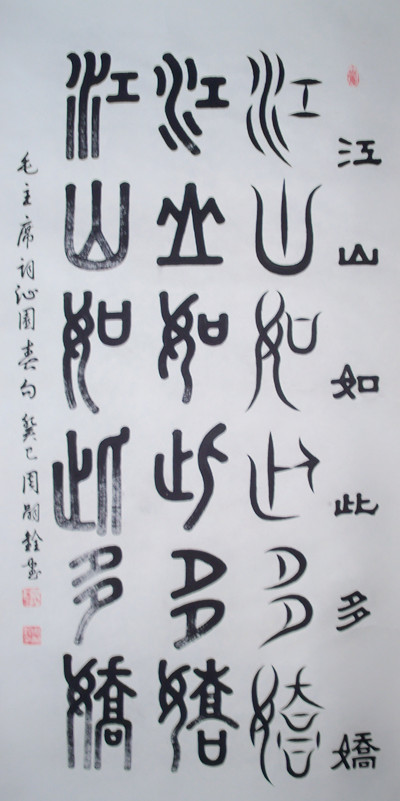 江山如此多嬌
江山如此多嬌
江山如此多嬌
江山如此多嬌
毛主席词沁園春句 癸巳周嗣銓書